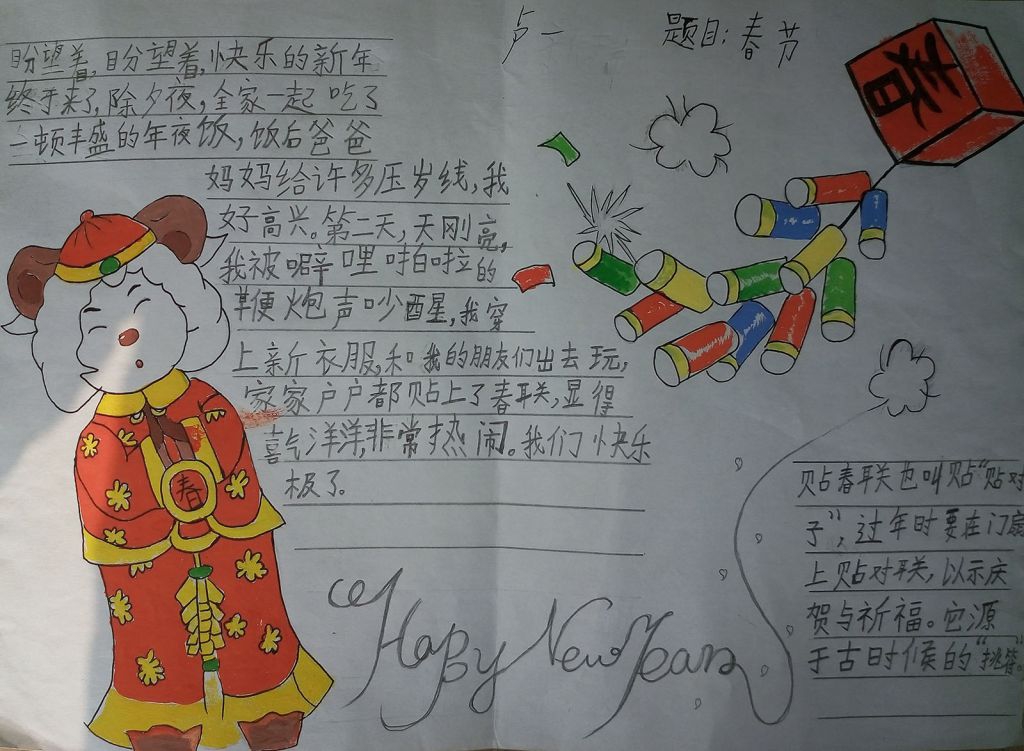 卢一
题目:春节
盼望着,盼望着,快乐的新年
终于来了,除夕夜,全家一起吃了
一顿丰盛的年夜饭,饭后爸爸
妈妈给许多压岁线,我
好高兴。第二天,天刚亮,
我被噼哩啪啦的
鞭炮声吵醒,我穿
上新衣服,和我的朋友们出去玩,
家家户户都贴上了春联,显得
喜气洋洋,非常热闹。我们快乐
极了。
春
春
贴春联也叫贴“贴对
子”,过年时要在门扇
上贴对联,以示庆
贺与祈福。它源
于古时候的“桃符”。
Happy New Year